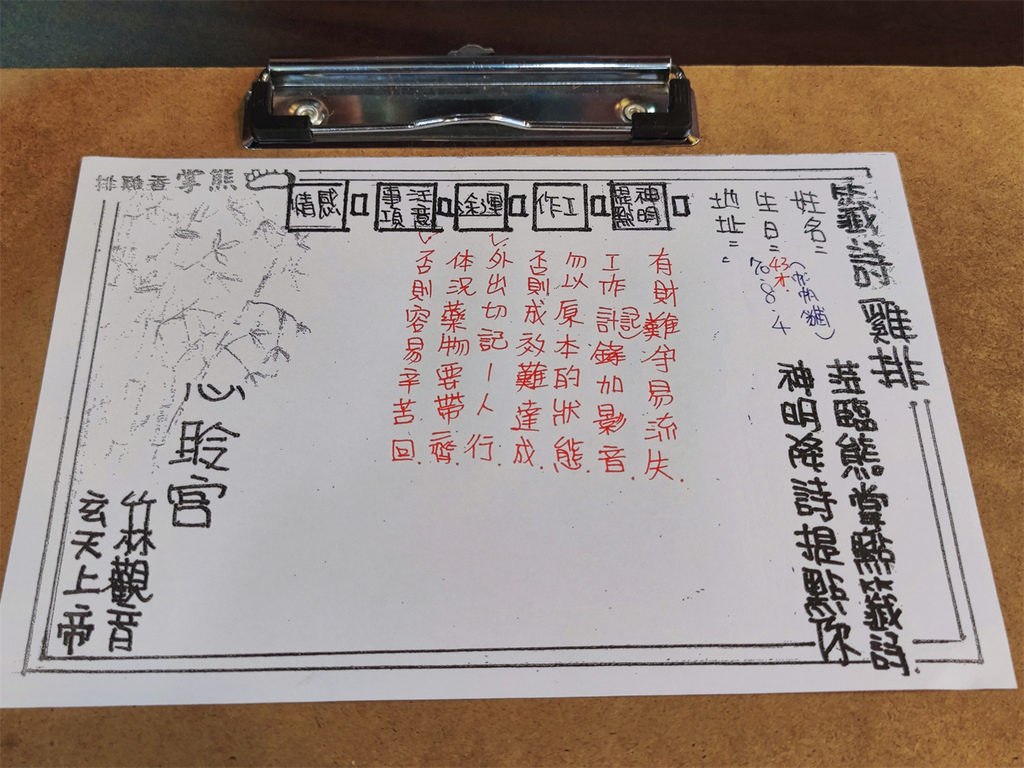 籤詩雞排
蒞臨熊掌點籤詩
神明降詩提點你
姓名:
生日: 43才
70.8.4
地址:
神明提點
工作
運途
注意事項
感情
有財難守易流失.
工作計(記)錄加影音.
勿以原本的狀態.
否則成效難達成.
外出切記一人行.
体況藥物要帶齊.
否則容易辛苦回.
熊掌香雞排
心聆宮
竹林觀音
玄天上帝